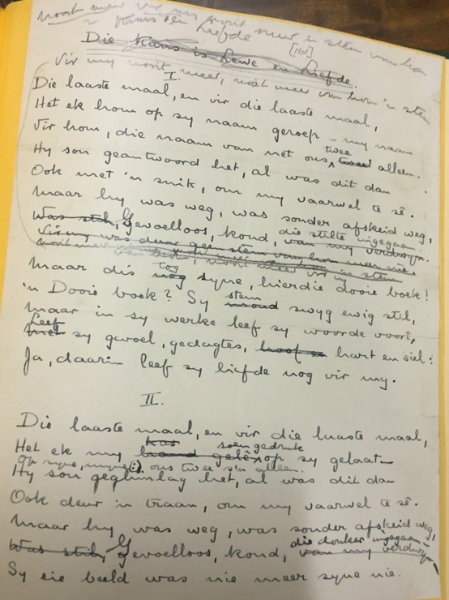 Nooit meer vir my nooit meer 'n stem van hom
'n Kans en liefde
[in]
Die Kans is Lewe en Liefde.
Vir my nooit meer, nooit meer van hom 'n stem
I.
Die laaste maal, en vir die laaste maal,
Het ek hom op sy naam geroep – my naam
Vir hom, die naam van net ons twee alleen.
Hy sou geantwoord het, al was dit dan
Ook met 'n snik, om my vaarwel te sê.
Maar hy was weg, was sonder afskeid weg,
Was stil, Gevoelloos, koud, van my verdwyn. die stilte ingegaan.
Vir my was daar geen stem van hom meer nie
nooit meer
Maar dis nog tog syne, hierdie dooie boek!
'n Dooie boek? Sy mond stem swyg ewig stil,
Maar in sy werke leef sy woorde voort,
Leef sy gevoel, gedagtes, hart en siel:
Ja, daarin leef sy liefde nog vir my.
II.
Die laaste maal, en vir die laaste maal,
Het ek my kus soengedruk op sy gelaat–
Op syne, ons twee s'n alleen.
Hy sou geglimlag het, al was dit dan
Ook deur 'n traan, om my vaarwel te sê.
Maar hy was weg, was sonder afskeid weg,
Was stil, Gevoelloos, koud, van my verdwyn die donker ingegaan–
Sy eie beeld was nie meer syne nie.